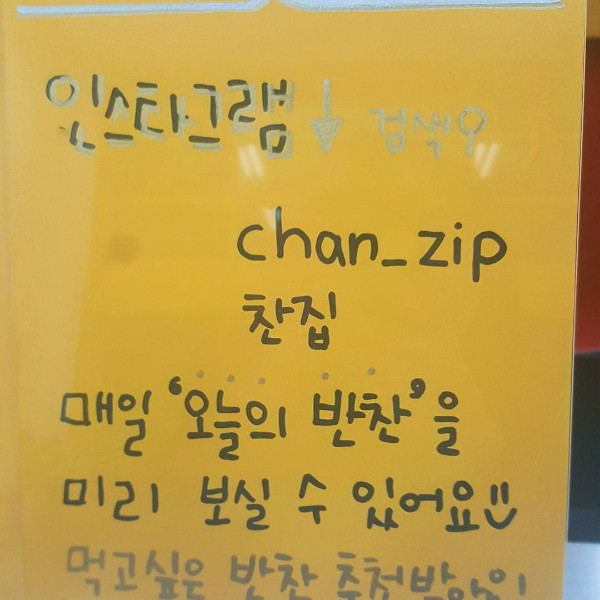 인스타그램 ↓ 검색
chan_zip
찬집
매일 '오늘의 반찬'을
미리 보실 수 있어요
먹고싶은 반찬 추천받아요